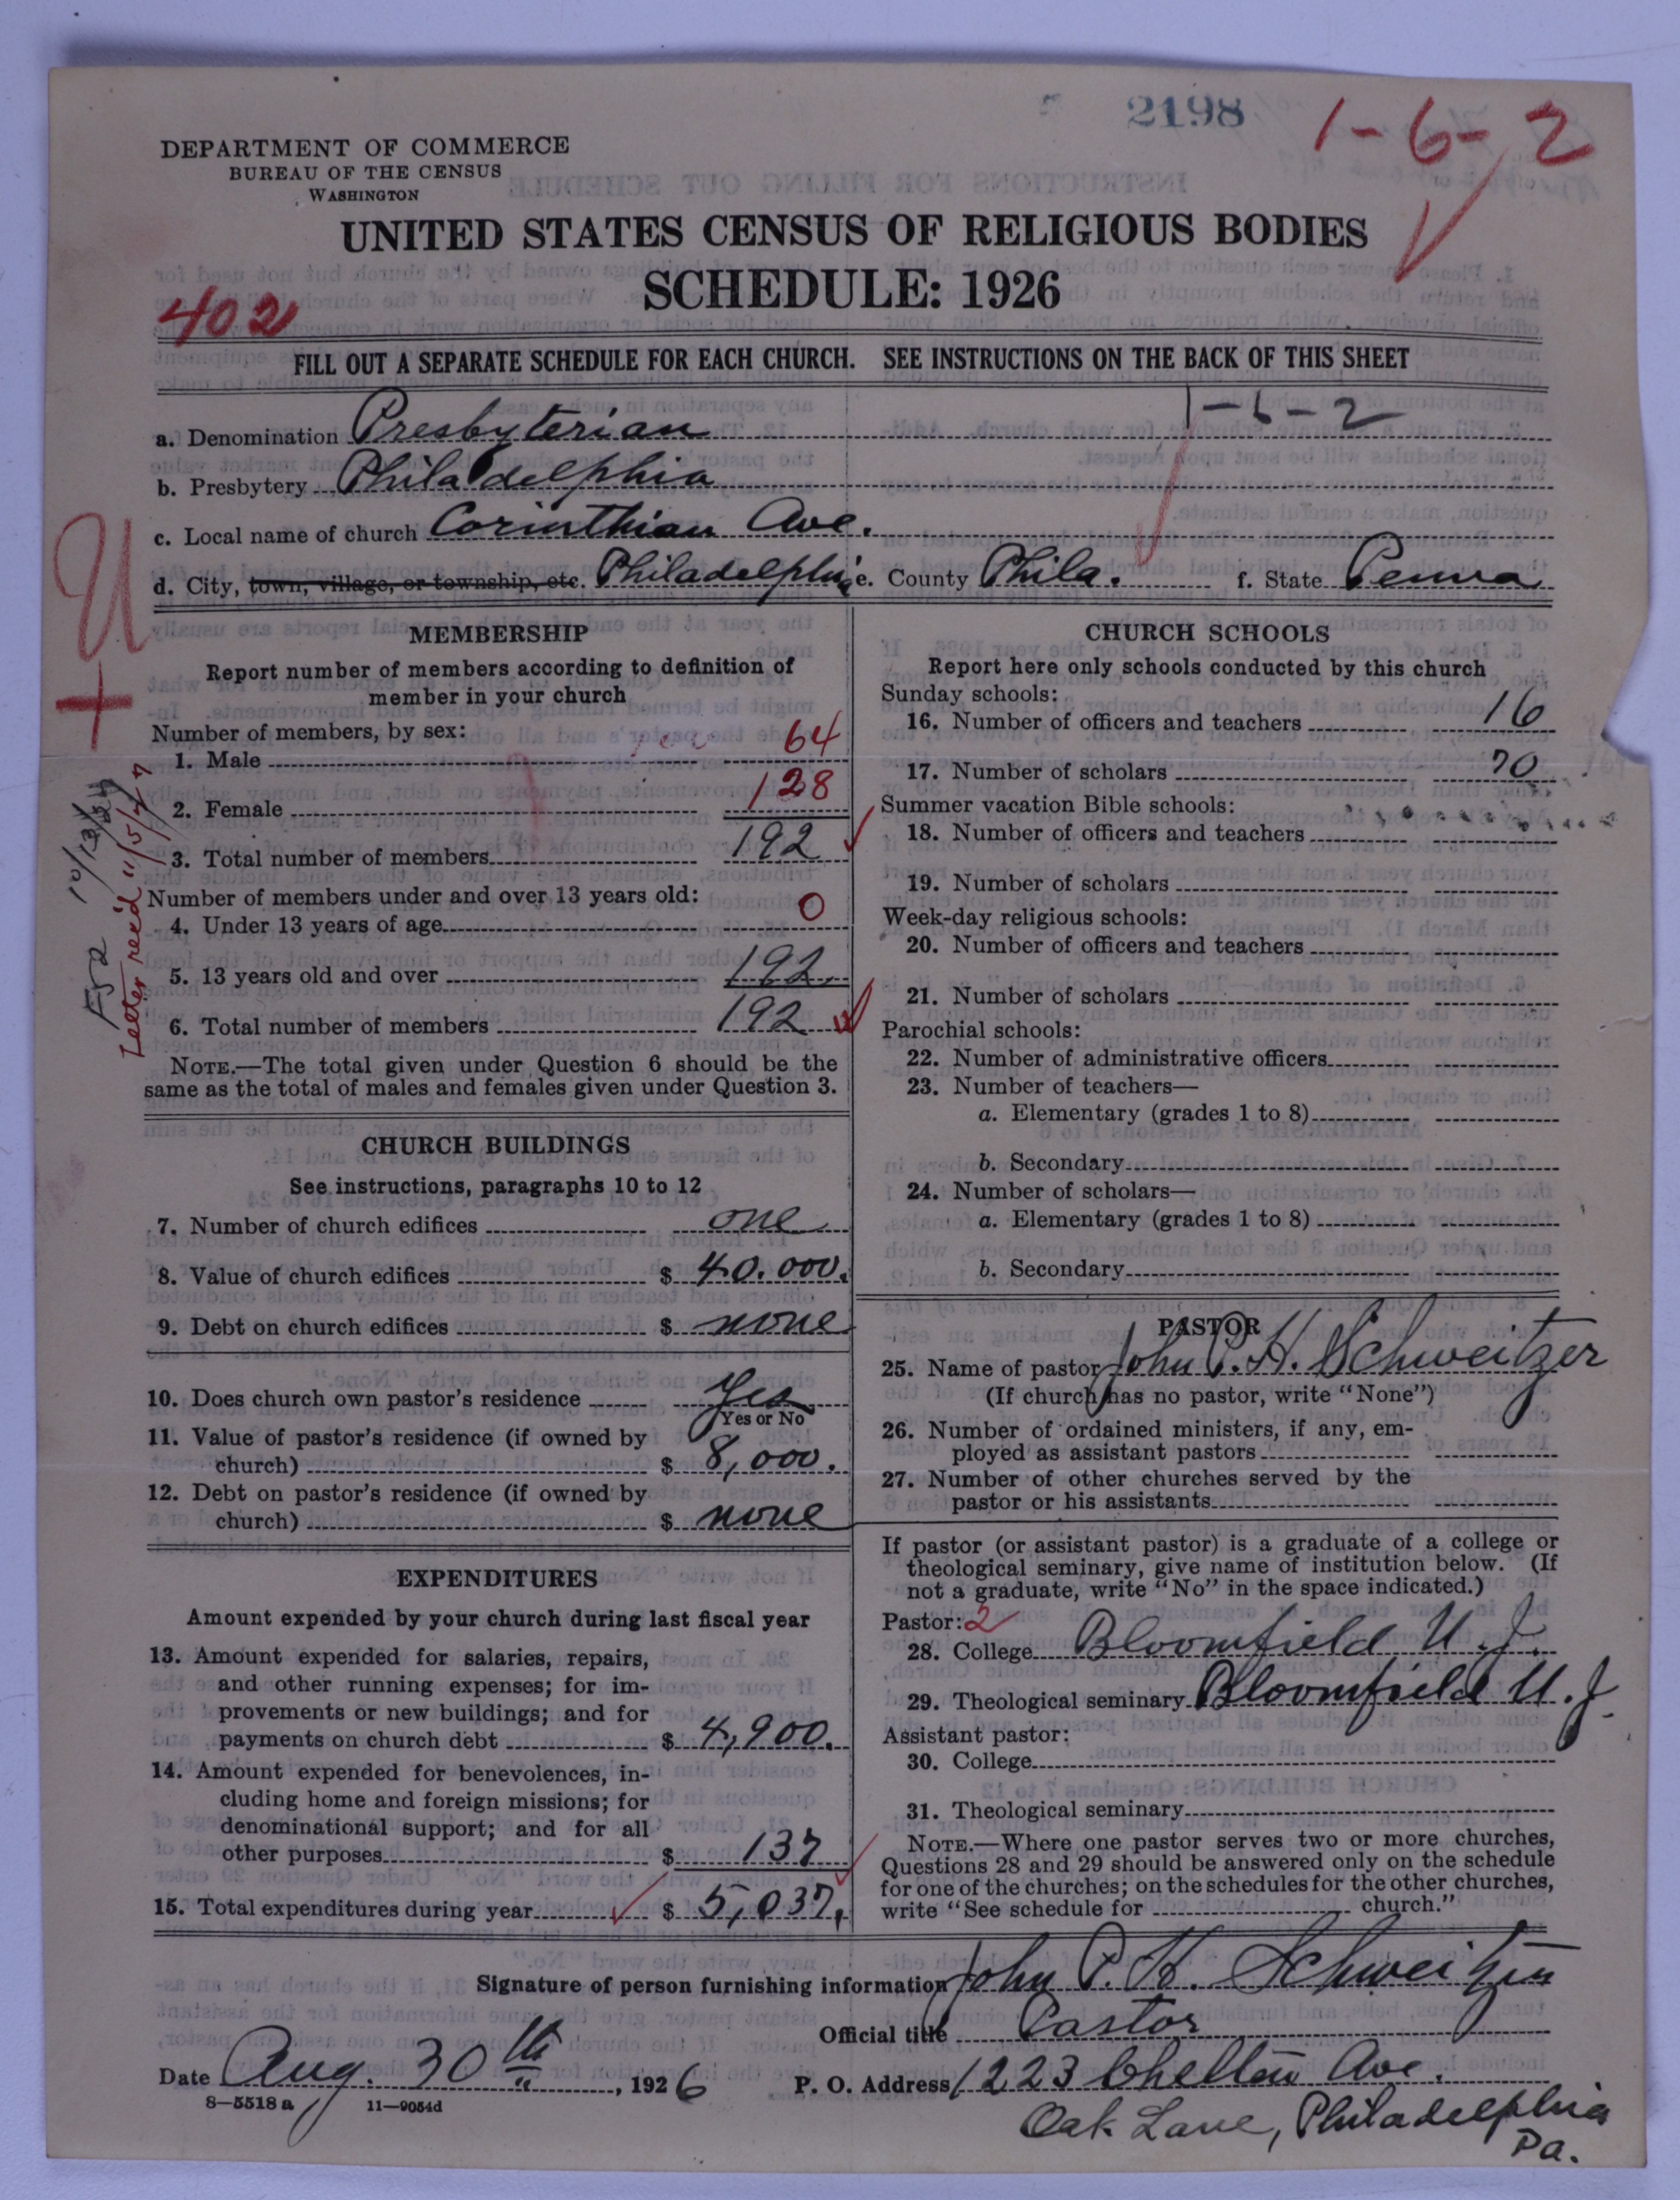 2198
1-6-2
DEPARTMENT OF COMMERCE
BUREAU OF THE CENSUS
WASHINGTON
UNITED STATES CENSUS OF RELIGIOUS BODIES
SCHEDULE: 1926
402
FILL OUT A SEPARATE SCHEDULE FOR EACH CHURCH. SEE INSTRUCTIONS ON THE BACK OF THIS SHEET
1-6-2
a. Denomination Presbyterian
b. Presbytery Philadelphia
c. Local name of church Corinthian Ave.
d. City, town, village, or township, etc. Philadelphia e. County Phila. f. State Penna
U
+
Letter rec'd 11/5/27
MEMBERSHIP
Report number of members according to definition of
member in your church
Number of members, by sex:
1. Male 64
2. Female 128
3. Total number of members 192
Number of members under and over 13 years old:
4. Under 13 years of age 0
5. 13 years old and over 192
6. Total number of members 192
NOTE.—The total given under Question 6 should be the
same as the total of males and females given under Question 3.
CHURCH BUILDINGS
See instructions, paragraphs 10 to 12
7. Number of church edifices one
8. Value of church edifices $ 40.000.
9. Debt on church edifices $ none
10. Does church own pastor's residence Yes
Yes or No
11. Value of pastor's residence (if owned by
church) $ 8,000.
12. Debt on pastor's residence (if owned by
church) $ none
EXPENDITURES
Amount expended by your church during last fiscal year
13. Amount expended for salaries, repairs,
and other running expenses; for im-
provements or new buildings; and for
payments on church debt $ 4,900.
14. Amount expended for benevolences, in-
cluding home and foreign missions; for
denominational support; and for all
other purposes $ 137
15. Total expenditures during year $ 5,037.
CHURCH SCHOOLS
Report here only schools conducted by this church
Sunday schools:
16. Number of officers and teachers 16
17. Number of scholars 70
Summer vacation Bible schools:
18. Number of officers and teachers
19. Number of scholars
Week-day religious schools:
20. Number of officers and teachers
21. Number of scholars
Parochial schools:
22. Number of administrative officers
23. Number of teachers—
a. Elementary (grades 1 to 8)
b. Secondary
24. Number of scholars—
a. Elementary (grades 1 to 8)
b. Secondary
PASTOR
25. Name of pastor John P. H. Schweitzer
(If church has no pastor, write "None")
26. Number of ordained ministers, if any, em-
ployed as assistant pastors
27. Number of other churches served by the
pastor or his assistants
If pastor (or assistant pastor) is a graduate of a college or
theological seminary, give name of institution below. (If
not a graduate, write "No" in the space indicated.)
Pastor: 2
28. College Bloomfield N. J.
29. Theological seminary Bloomfield N. J.
Assistant pastor:
30. College
31. Theological seminary
NOTE.—Where one pastor serves two or more churches,
Questions 28 and 29 should be answered only on the schedule
for one of the churches; on the schedules for the other churches,
write "See schedule for church."
Signature of person furnishing information John P. H. Schweitzer
Official title Pastor
Date Aug. 30th, 1926 P. O. Address 1223 Chelten Ave.
8—5518 a 11—9054d
Oak Lane, Philadelphia
Pa.